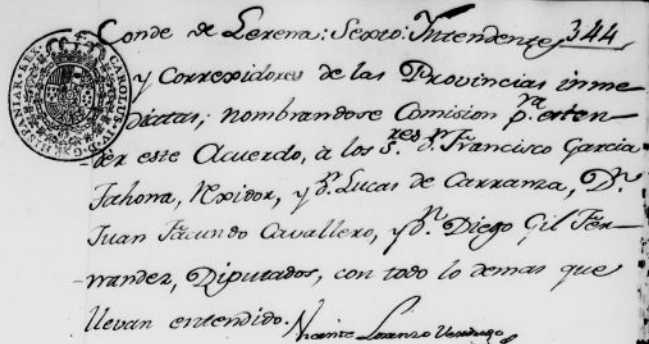 Conde de Lerena: Sexto: Intendentes 344
y Correxidores de las Provincias inme-
diatas; nombrandose Comision p.ra exten-
der este Acuerdo, à los S.res d.n Francisco Garcia
Tahona, Rexidor, y d.n Lucas de Carranza, D.n
Juan Facundo Cavallero, y d.n Diego Gil Fer-
nandez, Diputados, con todo lo demas que
llevan entendido. Vicente Lorenzo Verdugo
CAROLUS IV D G HISPANIAR REX